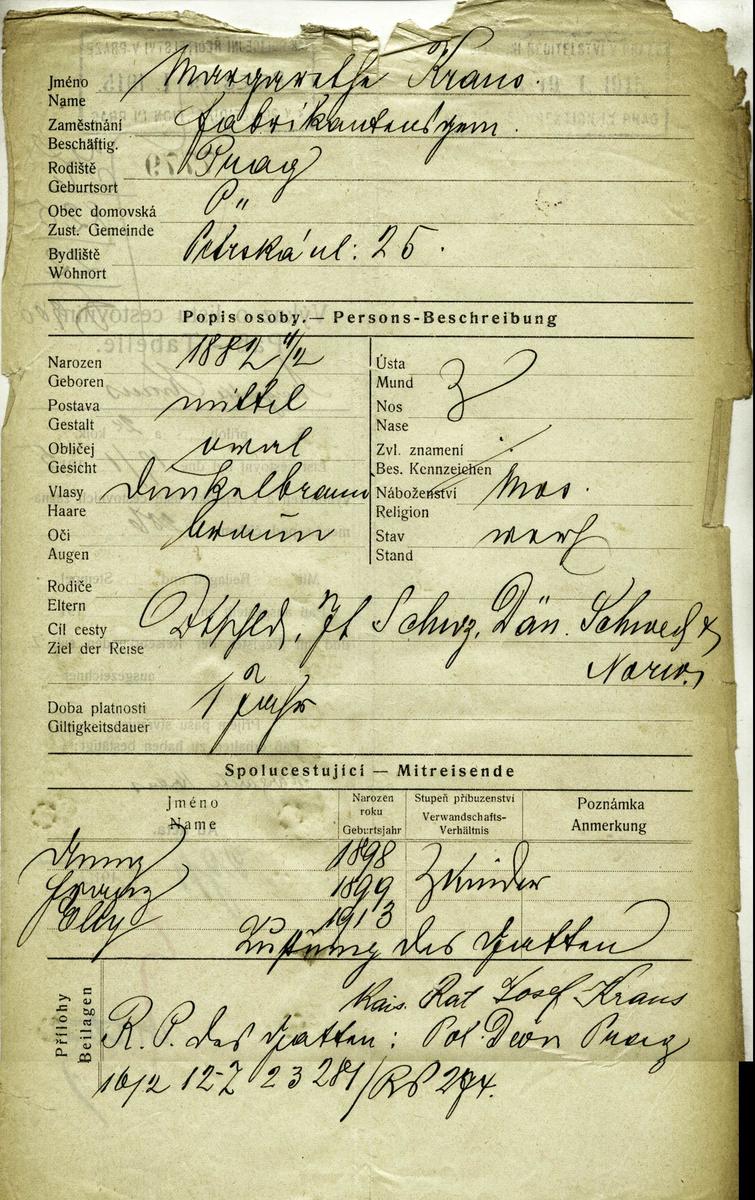 Jméno Margarethe Kraus.
Name
Zaměstnání Fabrikantensgem.
Beschäftig.
Rodiště Prag
Geburtsort
Obec domovská P "
Zust. Gemeinde
Bydliště Petrská ul: 25.
Wohnort
Popis osoby. — Persons-Beschreibung
Narozen 1882 4/2
Geboren
Postava mittel
Gestalt
Obličej oval
Gesicht
Vlasy dunkelbraun
Haare
Oči braun
Augen
Ústa
Mund
Nos
Nase
Zvl. znamení
Bes. Kennzeichen
Náboženství Mos.
Religion
Stav verh
Stand
Rodiče
Eltern
Cíl cesty Dtschld, It Schwz, Dän. Schwed &
Ziel der Reise
Norw.
Doba platnosti 1 Jahr
Giltigkeitsdauer
Spolucestující — Mitreisende
Jméno
Name
Narozen roku
Geburtsjahr
Stupeň příbuzenství
Verwandschafts-
Verhältnis
Poznámka
Anmerkung
1898
Franz 1899 Kinder
Elly 1913
des Gatten
Přílohy
Beilagen
Kais. Rat Josef Kraus
R. P. des Gatten: Pol. Deon Prag
16/2 12-Z 23 281/RP 294.